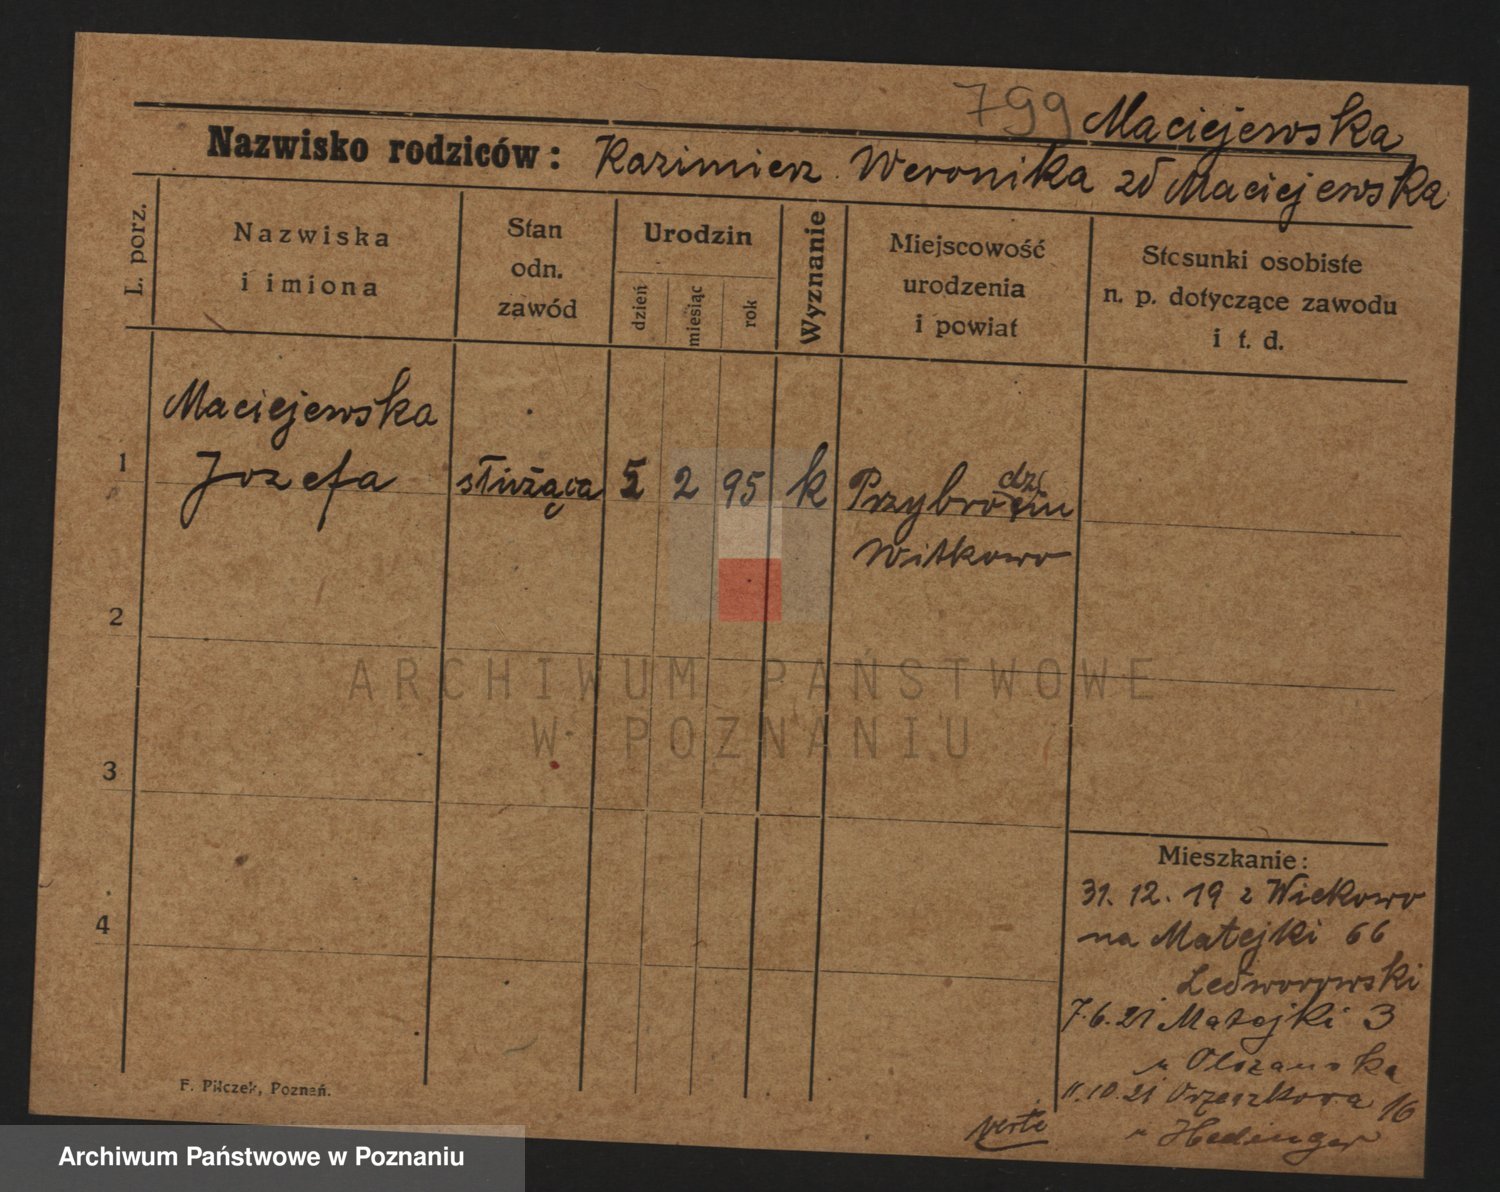 799 Maciejewska
Nazwisko rodziców: Kazimierz Weronika zd Maciejewska
L. porz.
Nazwiska
i imiona
Stan
odn.
zawód
Urodzin
dzień
miesiąc
rok
Wyznanie
Miejscowość
urodzenia
i powiat
Stosunki osobiste
n. p. dotyczące zawodu
i t. d.
Maciejewska
1 Jozefa służąca 5 2 95 k Przybrodzin
Witkowo
2
3
4
Mieszkanie:
31. 12. 19 z Wiekowo
na Matejki 66
Ledworowski
7.6.21 Matejki 3
u Olszanska
11.10.21 Orzeszkowa 16
u Hedinger
verte
F. Pilczek, Poznań.
ARCHIWUM PAŃSTWOWE
W POZNANIU
Archiwum Państwowe w Poznaniu